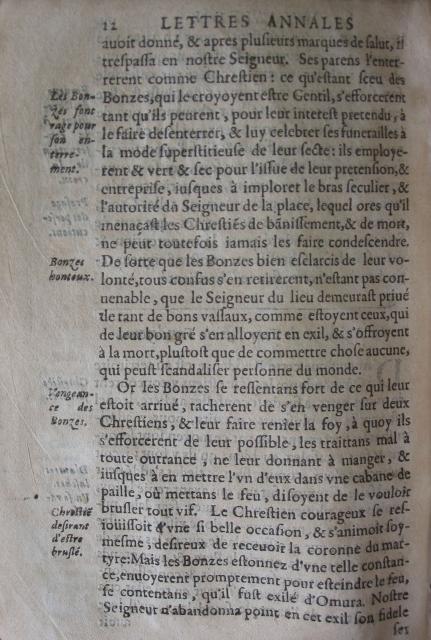 12 LETTRES ANNALES
auoit donné, & apres plusieurs marques de salut, il
trespassa en nostre Seigneur. Ses parens l'enter-
rerent comme Chrestien : ce qu'estant sceu des
Bonzes, qui le croyoyent estre Gentil, s'efforcerent
tant qu'ils peurent, pour leur interest pretendu, à
le faire desenterrer, & luy celebrer ses funerailles à
la mode superstitieuse de leur secte : ils employe-
rent & vert & sec pour l'issue de leur pretension, &
entreprise, iusques à implorer le bras seculier, &
l'autorité du Seigneur de la place, lequel ores qu'il
menaçast les Chrestiẽs de bãnissement, & de mort,
ne peut toutefois iamais les faire condescendre.
De sorte que les Bonzes bien esclarcis de leur vo-
lonté, tous confus s'en retirerent, n'estant pas con-
uenable, que le Seigneur du lieu demeurast priué
de tant de bons vassaux, comme estoyent ceux, qui
de leur bon gré s'en alloyent en exil, & s'offroyent
à la mort, plustost que de commettre chose aucune,
qui peust scandaliser personne du monde.
Or les Bonzes se ressentans fort de ce qui leur
estoit arriué, tacherent de s'en venger sur deux
Chrestiens, & leur faire renier la foy, à quoy ils
s'efforcerent de leur possible, les traittans mal à
toute outrance, ne leur donnant à manger, &
iusques à en mettre l'vn d'eux dans vne cabane de
paille, où mettans le feu, disoyent de le vouloir
brusler tout vif. Le Chrestien courageux se res-
iouissoit d'vne si belle occasion, & s'animoit soy-
mesme, desireux de receuoir la coronne du mar-
tyre: Mais les Bonzes estonnez d'vne telle constan-
ce, enuoyerent promptement pour esteindre le feu,
se contentans, qu'il fust exilé d'Omura. Nostre
Seigneur n'abandonna point en cet exil son fidele
ser
Les Bon-
zes font
rage pour
son en-
terre-
ment.
Bonzes
honteux.
Vengean-
ce des
Bonzes.
Chrestiẽ
desirant
d'estre
bruslé.